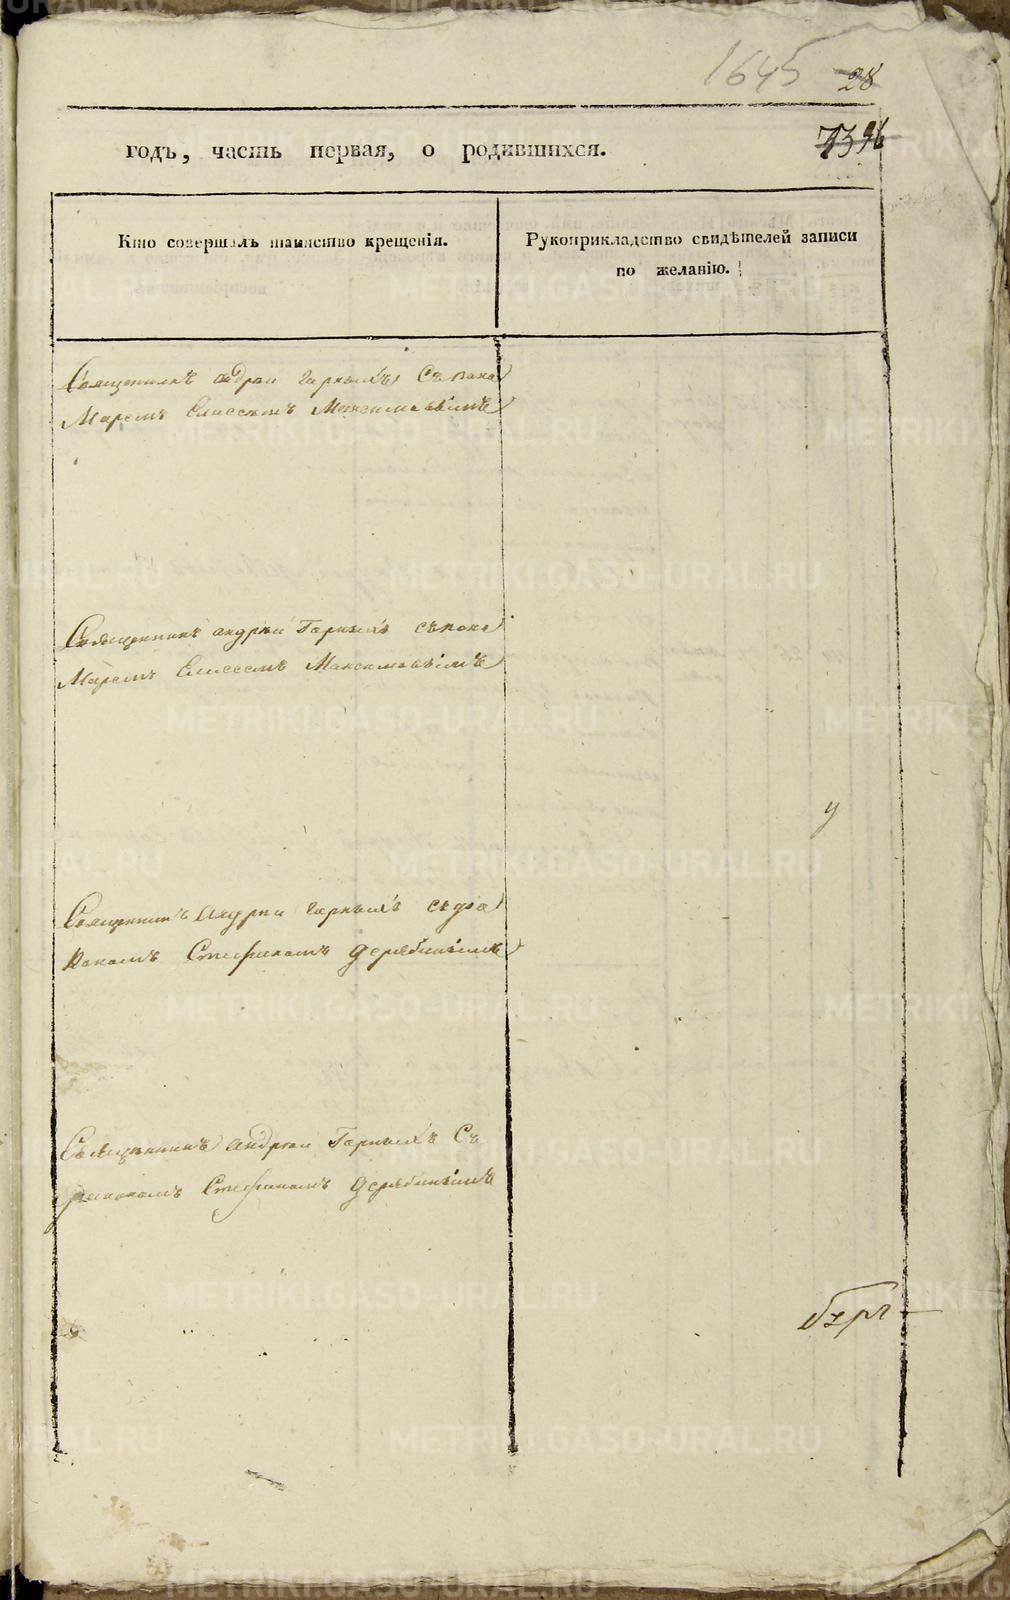 1645 28
73 96
годъ, часть первая, о родившихся.
Кто совершалъ таинство крещенія.
Рукоприкладство свидѣтелей записи
по желанію.
Священникъ андреи горныхъ Съ пона
Маремъ Елисеемъ Максимовымъ
Священникъ андреи Горныхъ съ поно
Маремъ Елисеемъ Максимовымъ
Священникъ Андреи горныхъ съ дia
кономъ Стефаномъ дерябинымъ
Священникъ андреи Горныхъ Съ
диакономъ Стефаномъ дерябинымъ
METRIKI.GASO-URAL.RU